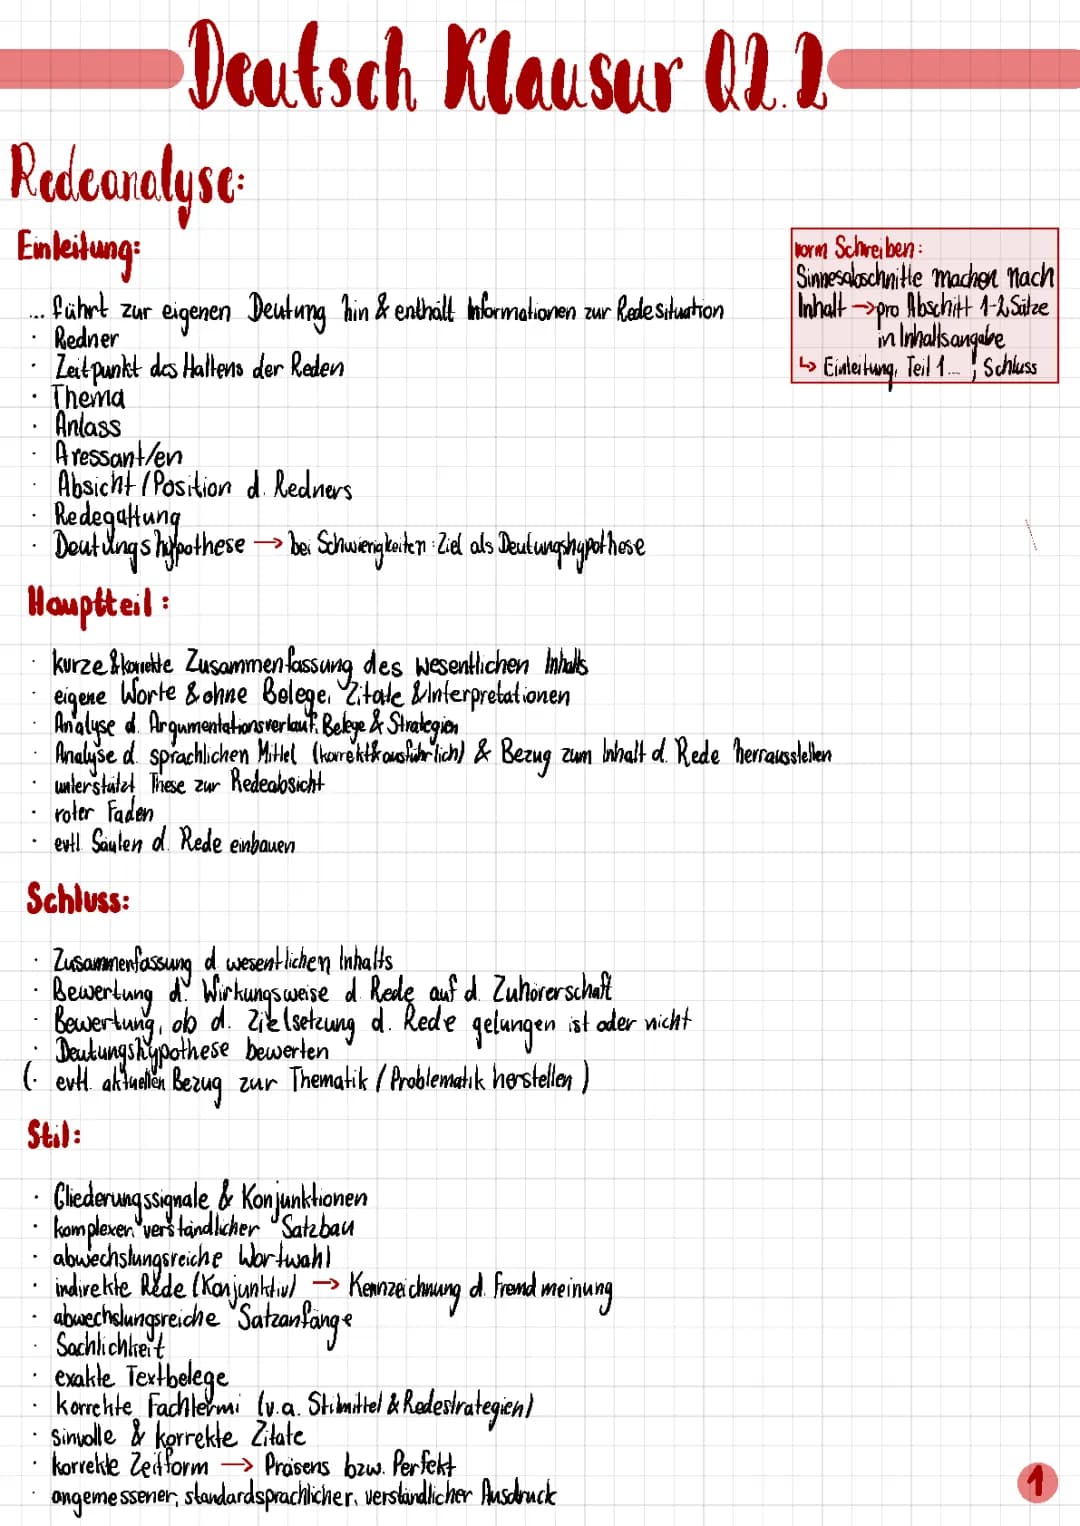 Deutsch Klausur Q2.2
Redeanalyse:
Einleitung:
... führt zur eigenen Deutung hin & enthält Informationen zur Redesituation
· Redner
· Zeitpunkt des Haltens der Reden
· Thema
· Anlass
· Aressant/en
· Absicht / Position d. Redners
· Redegattung
· Deutungshypothese → bei Schwierigkeiten: Ziel als Deutungshypothese
vorm Schreiben:
Sinnesabschnitte machen nach
Inhalt → pro Abschitt 1-2 Sätze
in Inhaltsangabe
↳ Einleitung, Teil 1..., Schluss
Hauptteil:
· kurze & korrekte Zusammenfassung des wesentlichen Inhalts
· eigene Worte & ohne Belege, Zitate & Interpretationen
· Analyse d. Argumentationsverlauf, Belege & Strategien
· Analyse d. sprachlichen Mittel (korrekt & ausführlich) & Bezug zum Inhalt d. Rede herrausstellen
· unterstützt These zur Redeabsicht
· roter Faden
· evtl. Säulen d. Rede einbauen
Schluss:
· Zusammenfassung d. wesentlichen Inhalts
· Bewertung d. Wirkungsweise d. Rede auf d. Zuhörerschaft
· Bewertung, ob d. Zielsetzung d. Rede gelungen ist oder nicht
· Deutungshypothese bewerten
(· evtl. aktuellen Bezug zur Thematik / Problematik herstellen)
Stil:
· Gliederungssignale & Konjunktionen
· komplexer, verständlicher Satzbau
· abwechslungsreiche Wortwahl
· indirekte Rede (Konjunktiv) → Kennzeichnung d. Fremdmeinung
· abwechslungsreiche Satzanfänge
· Sachlichkeit
· exakte Textbelege
· korrekte Fachtermi (v.a. Stilmittel & Redestrategien)
· sinvolle & korrekte Zitate
· korrekte Zeitform → Präsens bzw. Perfekt
· angemessener, standardsprachlicher, verständlicher Ausdruck
1